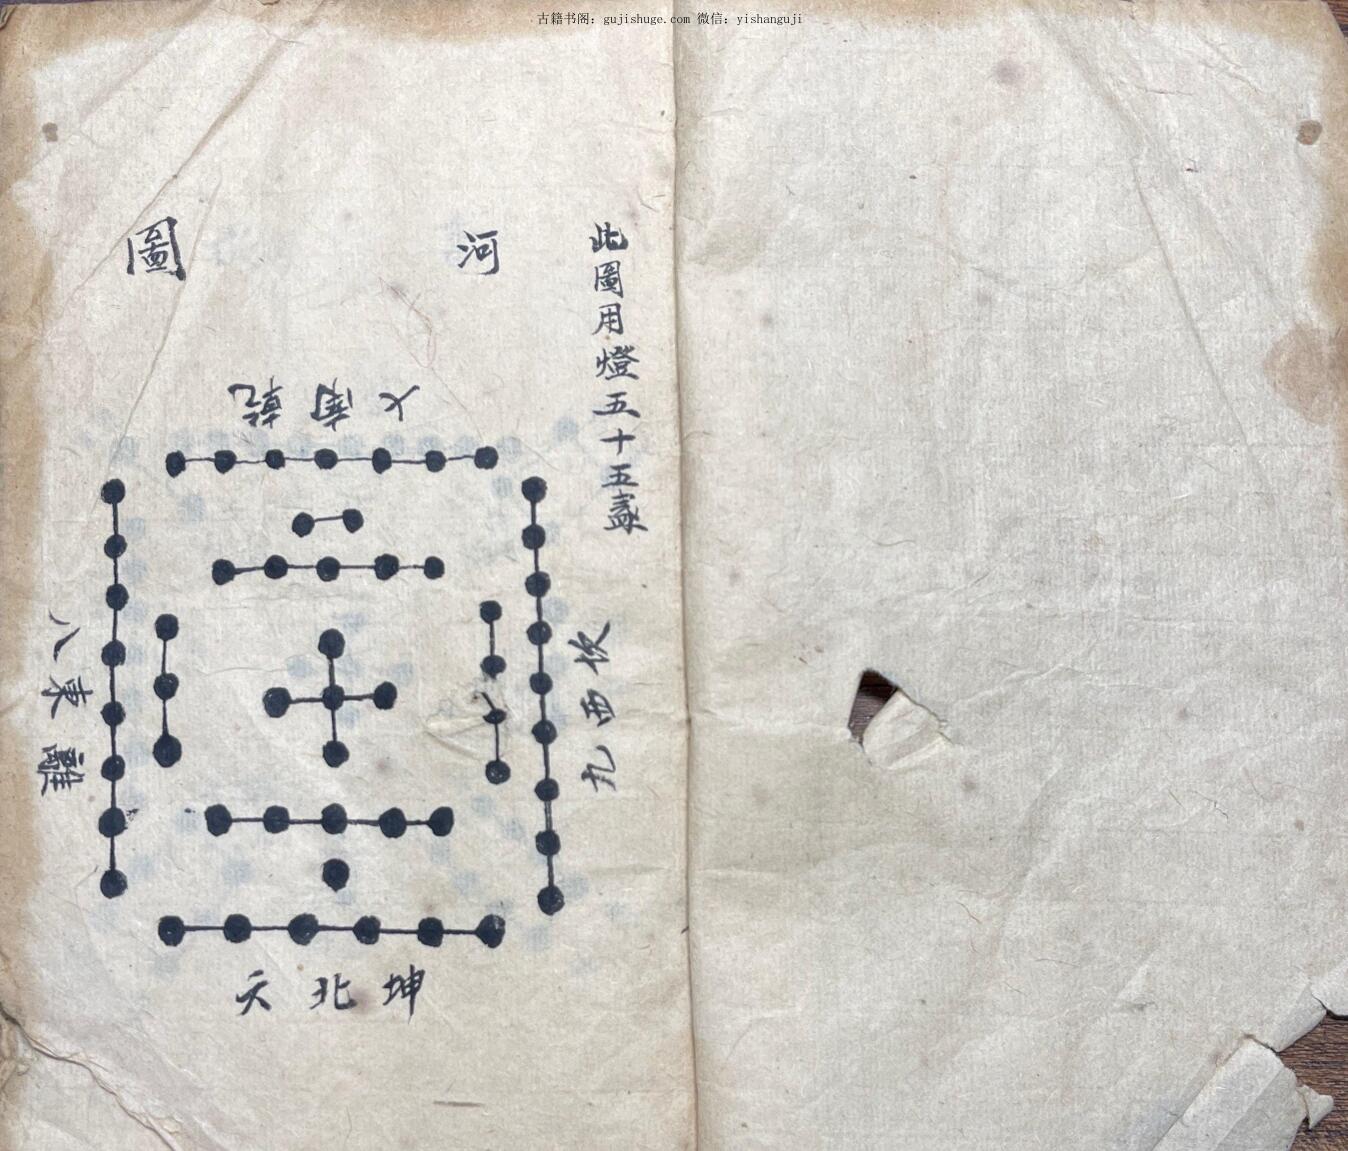 古籍书阁：gujishuge.com 微信：yishanguji
此圖用燈五十五盞
河圖
南乾
坎西九
八東離
北坤